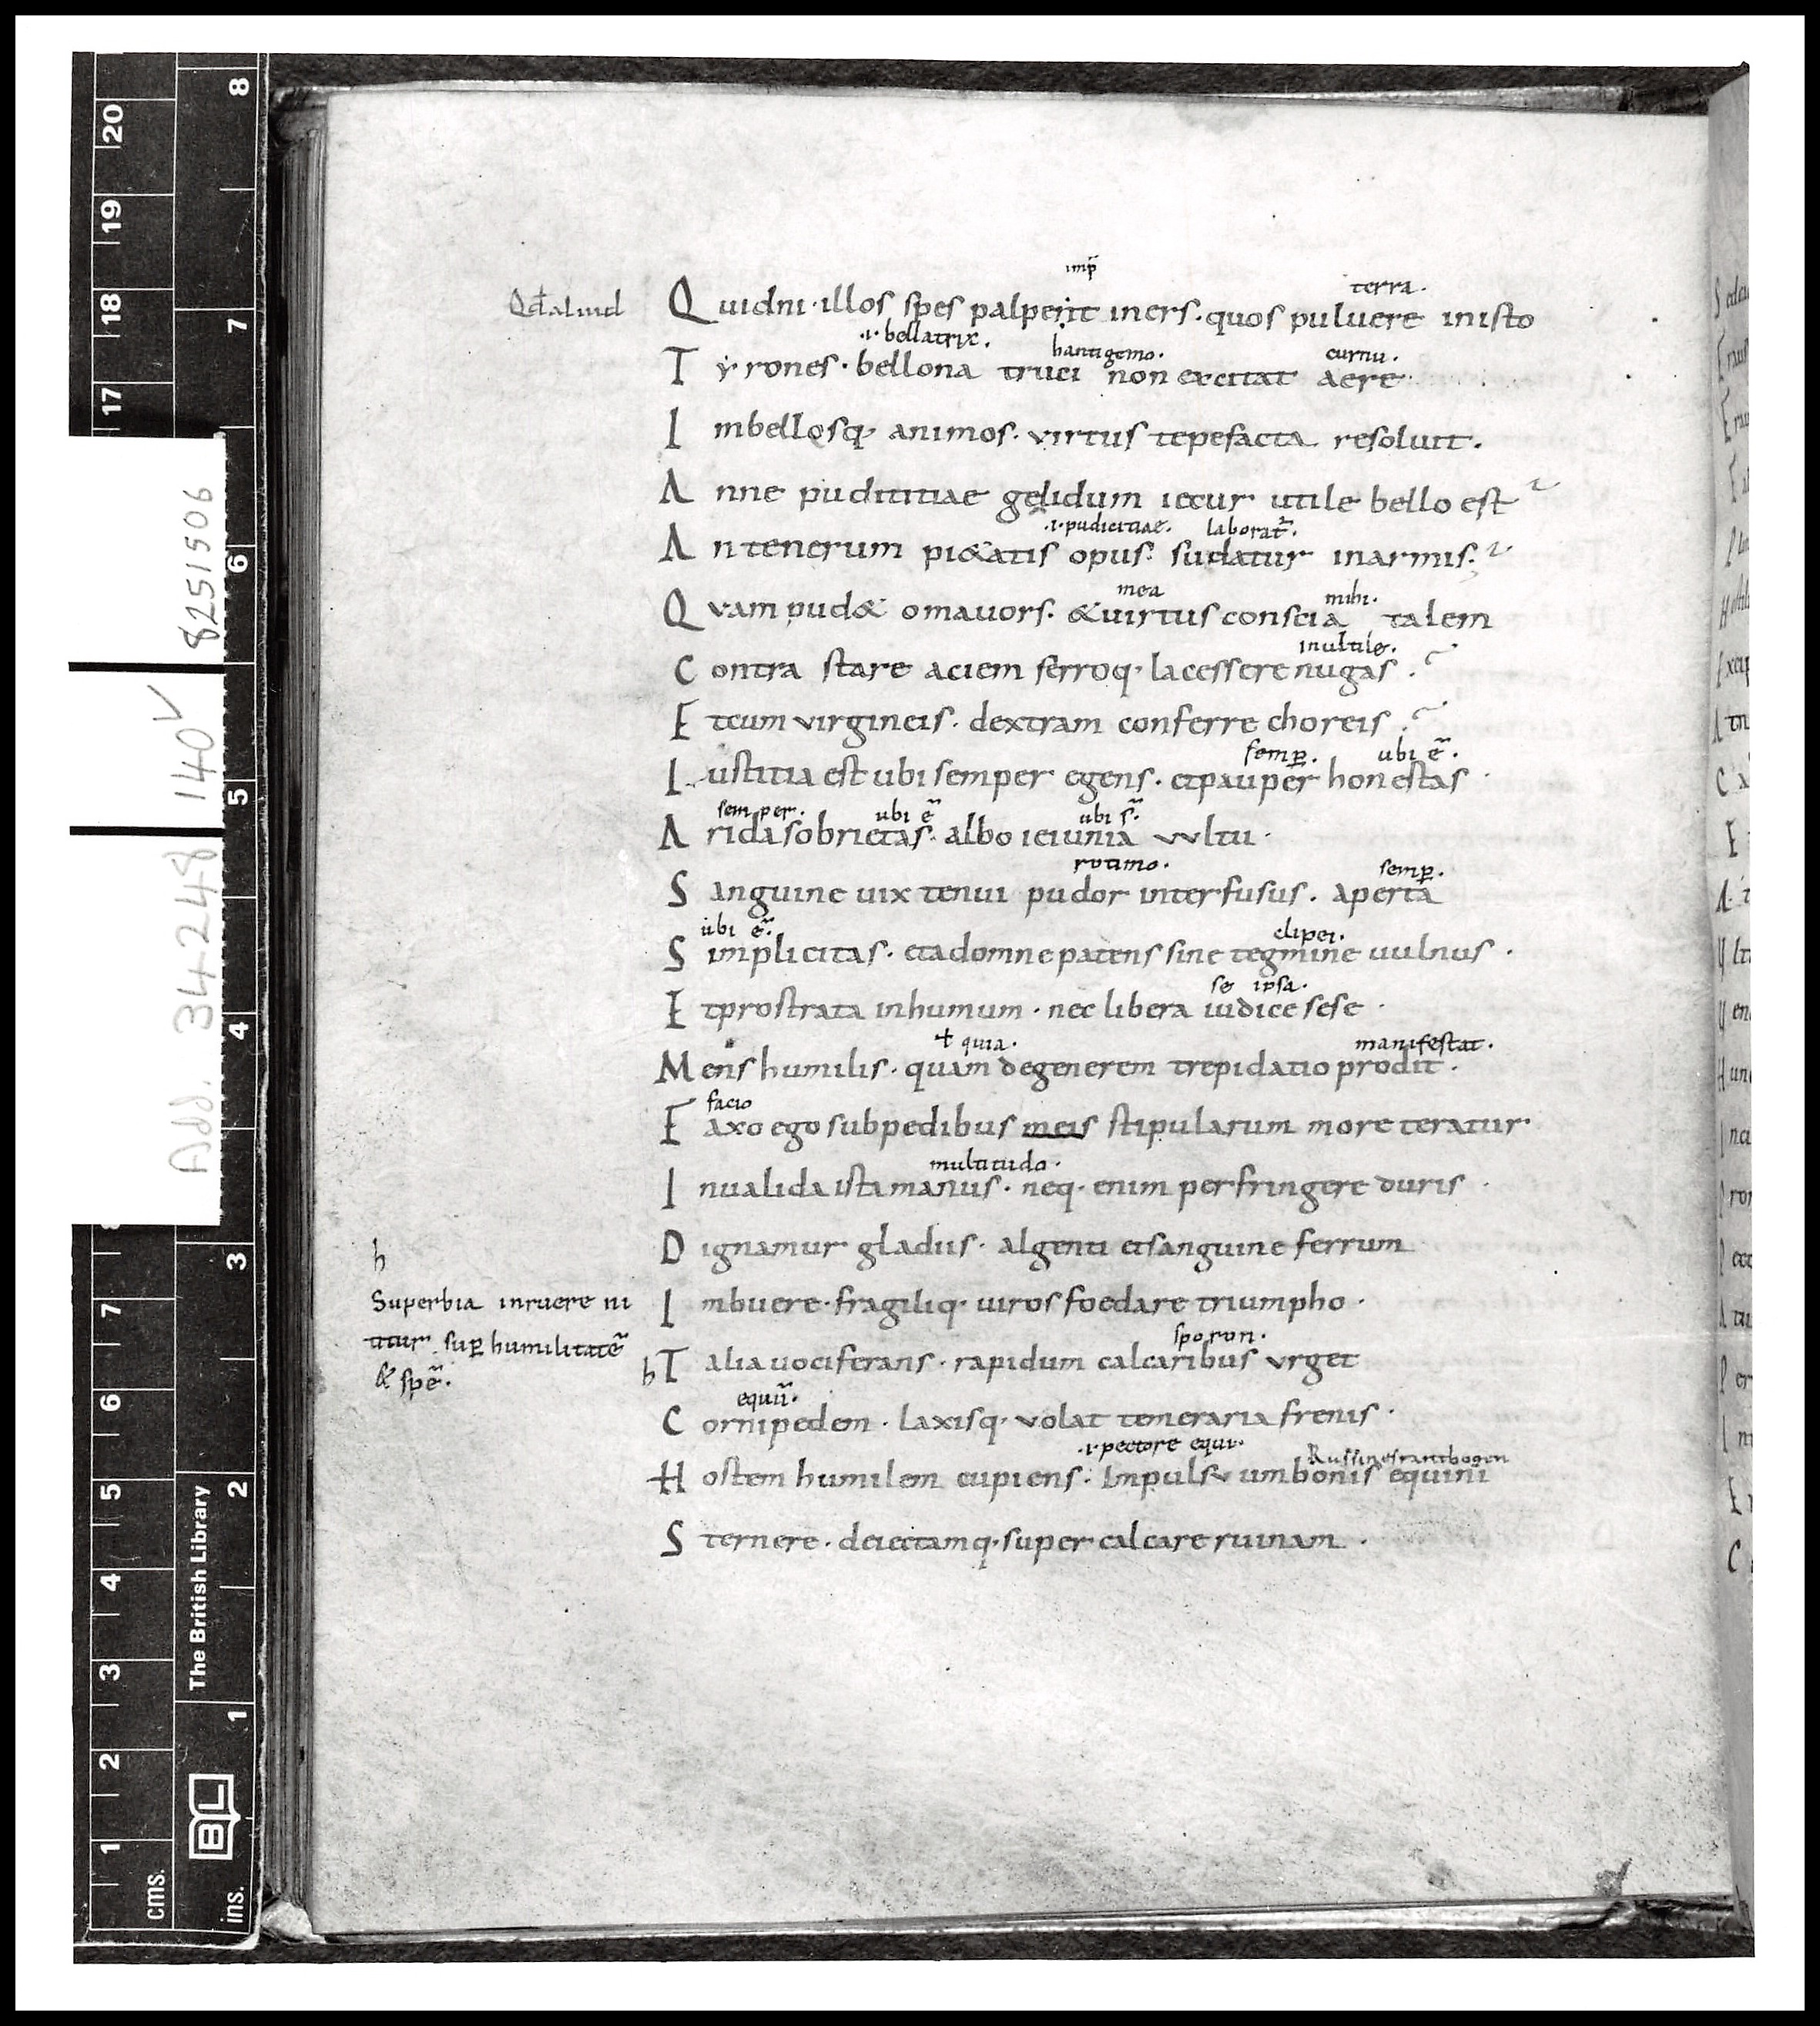 imp̄ terra.
Qđ aliud Quidni· illos spes palperit iners. quos puluere inisto
.i. bellatrix. hantigemo. curnu.
Tẏrones· bellona truci non excitat aere
Imbellesq· animos· virtus tepefacta resoluit.
Anne pudititiae gelidum iecur utile bello est
.i. pudicitiae. laborat̄.
An tenerum pi&atis opus. sudatur inarmis.
mea mihi.
Qvam pud& omauors. &uirtus conscia talem
inutile.
Contra stare aciem ferroq· lacessere nugas.
Etcum virgineis. dextram conferre choreis.
semp̱. ubi ē.
Iustitia est ubi semper egens. etpauper honestas.
semper. ubi ē ubi s̄.
Arida sobrietas. albo ieiunia vvltu.
rotimo. semp̱.
Sanguine uix tenui pudor interfusus. aperta
ubi ē. clipei.
Simplicitas. etadomne patens sine tegmine uulnus.
se ipsa.
Etprostrata inhumum. nec libera iudice sese.
ɫ quia. manifestat.
Mens humilis. quam degenerem trepidatio prodit.
facio
Faxo ego subpedibus meis stipularum more teratur
multitudo.
Inualida ista manus. neq· enim perfringere duris.
Dignamur gladiis. algenti etsanguine ferrum
h
Superbia inruere ni
titur sup̱ humilitatē
& spē.
Imbuere. fragiliq· uiros foedare triumpho.
sporon.
h Talia uociferans. rapidum calcaribus vrget
equū.
Cornipedem. laxisq· volat temeraria frenis.
.i. pectore equi. Russinesrantbogen
Hostem humilem cupiens. Impulsv umbonis equini
Sternere. deiectamq· super calcare ruinam.
Add. 34248 140v 8251506
The British Library
BL
cms.
ins.
1 2 3 4 5 6 7 17 18 19 20
1 2 3 4 5 6 7 8